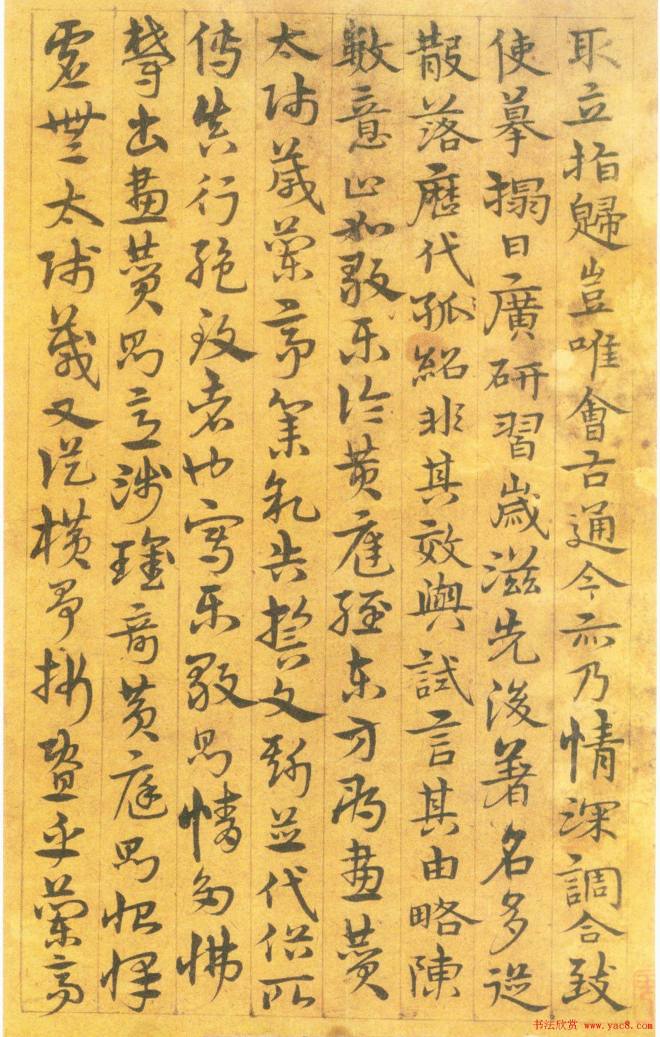 取立指歸豈唯會古通今亦乃情深調合致
使摹搨日廣研習歲滋先後著名多從
散落歷代孤紹非其效與試言其由略陳
數意止如毅樂論黃庭經東方朔畫贊
太師箴蘭亭集序告誓文斯並代俗所
傳真行絕致者也寫樂毅則情多怫
鬱書畫贊則意涉瓌奇黃庭則怡懌
虛無太師箴又從橫爭折暨乎蘭亭
书法欣赏 www.yac8.com